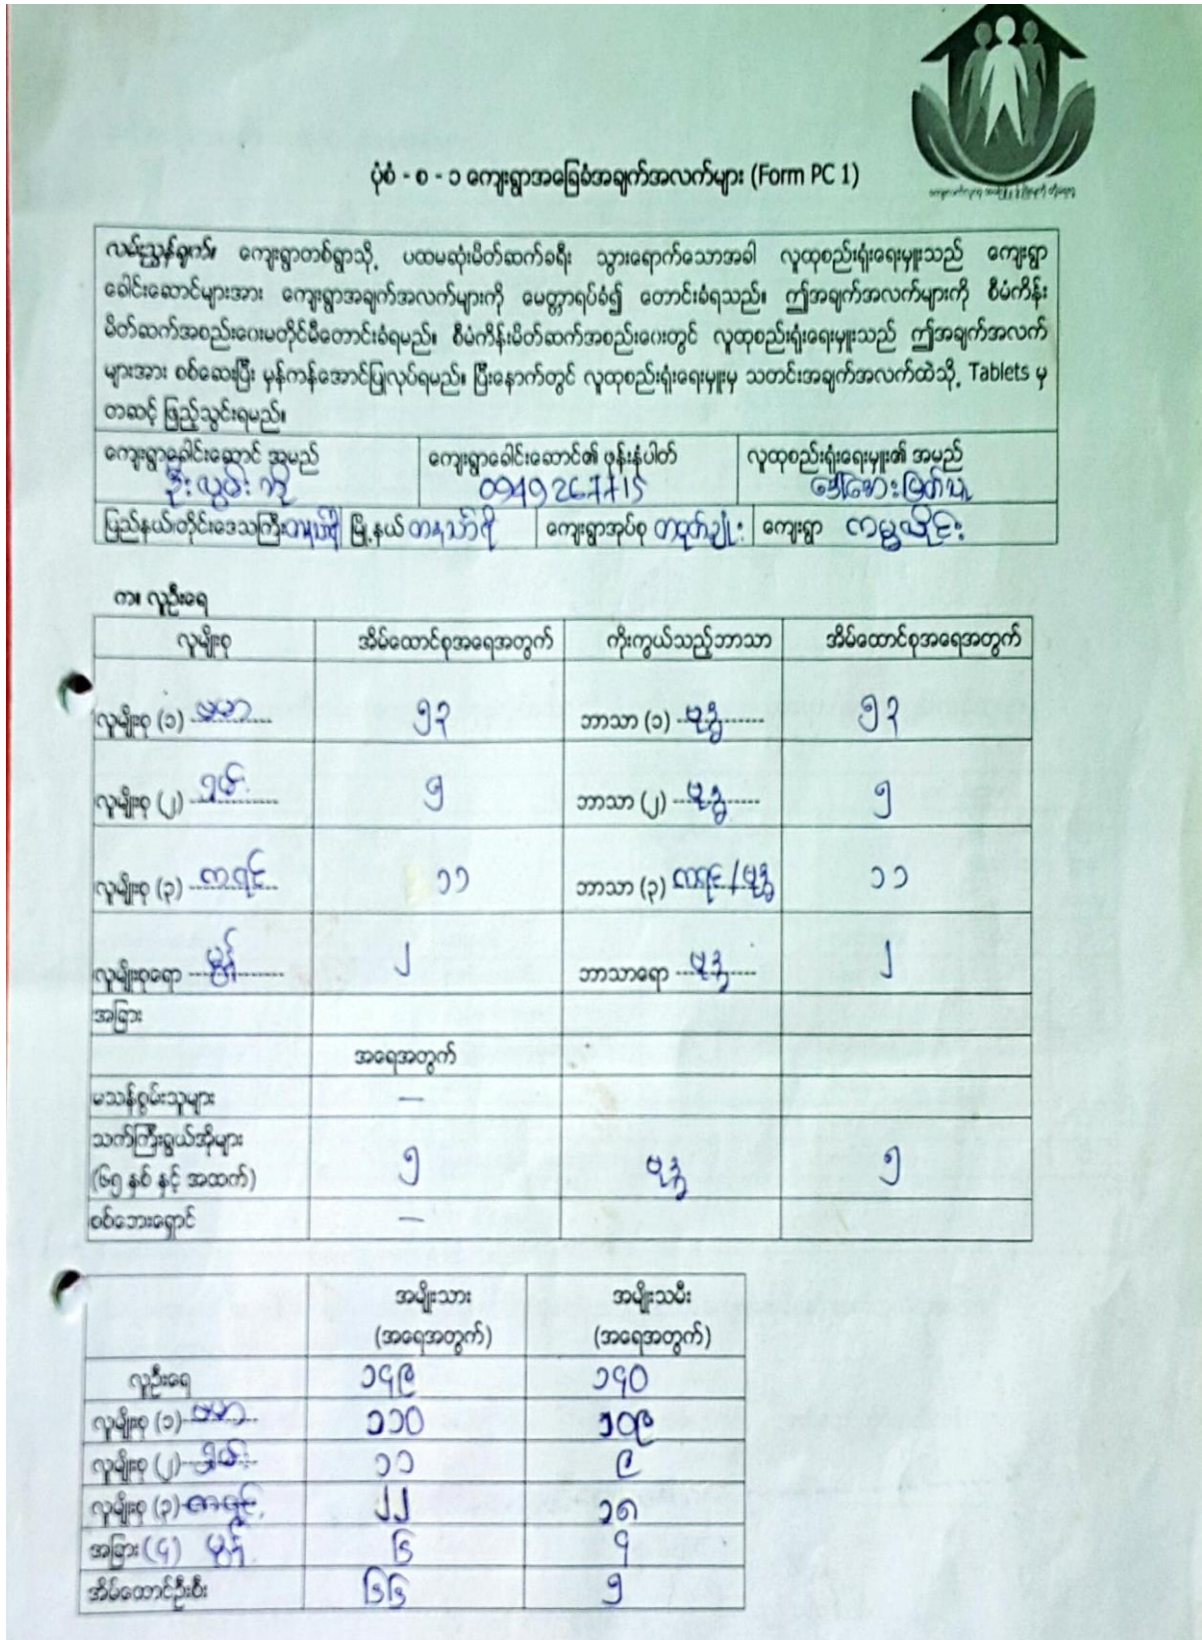 ပုံစံ - စ - ၁ ကျေးရွာအခြေခံအချက်အလက်များ (Form PC 1)
လမ်းညွှန်ချက်။ ကျေးရွာတစ်ရွာသို့ ပထမဆုံးမိတ်ဆက်ခရီး သွားရောက်သောအခါ လူထုစည်းရုံးရေးမှူးသည် ကျေးရွာ
ခေါင်းဆောင်များအား ကျေးရွာအချက်အလက်များကို မေတ္တာရပ်ခံ၍ တောင်းခံရသည်။ ဤအချက်အလက်များကို စီမံကိန်း
မိတ်ဆက်အစည်းဝေးမတိုင်မီတောင်းခံရမည်။ စီမံကိန်းမိတ်ဆက်အစည်းဝေးတွင် လူထုစည်းရုံးရေးမှူးသည် ဤအချက်အလက်
များအား စစ်ဆေးပြီး မှန်ကန်အောင်ပြုလုပ်ရမည်။ ပြီးနောက်တွင် လူထုစည်းရုံးရေးမှူးမှ သတင်းအချက်အလက်ထဲသို့ Tablets မှ
တဆင့် ဖြည့်သွင်းရမည်။
ကျေးရွာခေါင်းဆောင် အမည် ကျေးရွာခေါင်းဆောင်၏ ဖုန်းနံပါတ် လူထုစည်းရုံးရေးမှူး၏ အမည်
ဦးလွမ်းကို 0949267715
ပြည်နယ်/တိုင်းဒေသကြီး တနင်္သာရီ မြို့နယ် တနင်္သာရီ ကျေးရွာအုပ်စု ကျေးရွာ
က။ လူဦးရေ
လူမျိုးစု အိမ်ထောင်စုအရေအတွက် ကိုးကွယ်သည့်ဘာသာ အိမ်ထောင်စုအရေအတွက်
လူမျိုးစု (၁) ဗမာ ၅၃ ဘာသာ (၁) ဗုဒ္ဓ ၅၃
လူမျိုးစု (၂) ရှမ်း ၅ ဘာသာ (၂) ဗုဒ္ဓ ၅
လူမျိုးစု (၃) ကရင် ၁၁ ဘာသာ (၃) ကရင်/ဗုဒ္ဓ ၁၁
လူမျိုးစုရော မွန် ၂ ဘာသာရော ဗုဒ္ဓ ၂
အခြား
အရေအတွက်
မသန်စွမ်းသူများ —
သက်ကြီးရွယ်အိုများ
(၆၅ နှစ် နှင့် အထက်) ၅ ဗုဒ္ဓ ၅
စစ်ဘေးရှောင် —
အမျိုးသား အမျိုးသမီး
(အရေအတွက်) (အရေအတွက်)
လူဦးရေ ၁၄၉ ၁၄၀
လူမျိုးစု (၁) ဗမာ ၁၁၀ ၁၀၉
လူမျိုးစု (၂) ရှမ်း ၁၁ ၉
လူမျိုးစု (၃) ကရင် ၂၂ ၁၈
အခြား (၄) မွန် ၆ ၄
အိမ်ထောင်ဦးစီး ၆၆ ၅